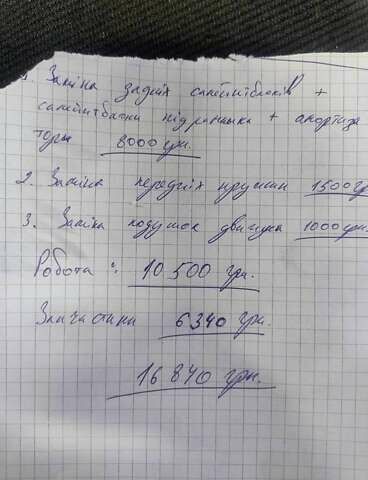 1 Заміна задніх сайлентблоків +
сайлентблоки підрамника + амортиза
тори 8000 грн.
2. Заміна передніх пружин 1500 гр
3. Заміна подушок двигуна 1000 грн.
Робота: 10 500 грн.
Запчастини 6340 грн.
16 840 грн.